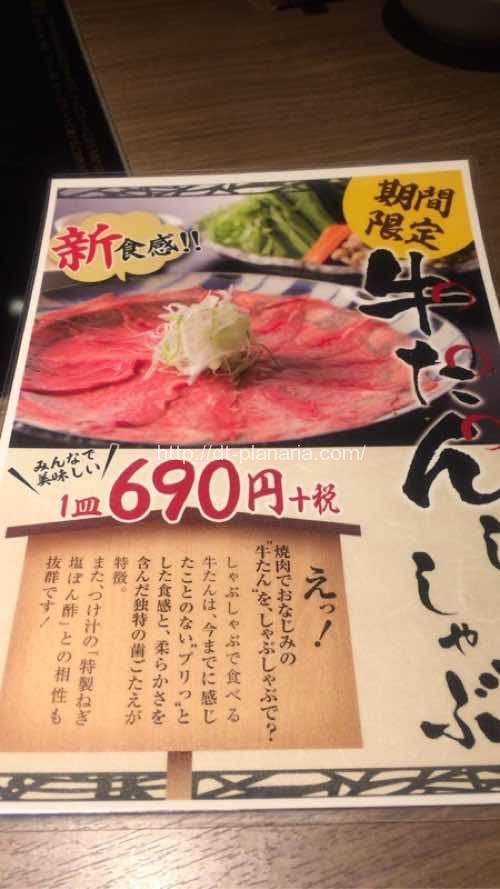 期間
限定
新食感!!
牛たんしゃぶしゃぶ
http://dt-planaria.com/
みんなで
美味しい
1皿690円+税
えっ！
焼肉でおなじみの
"牛たん"を、しゃぶしゃぶで？
しゃぶしゃぶで食べる
牛たんは、今までに感じ
たことのない"プリっ"と
した食感と、柔らかさを
含んだ独特の歯ごたえが
特徴。
また、つけ汁の「特製ねぎ
塩ぽん酢」との相性も
抜群です！